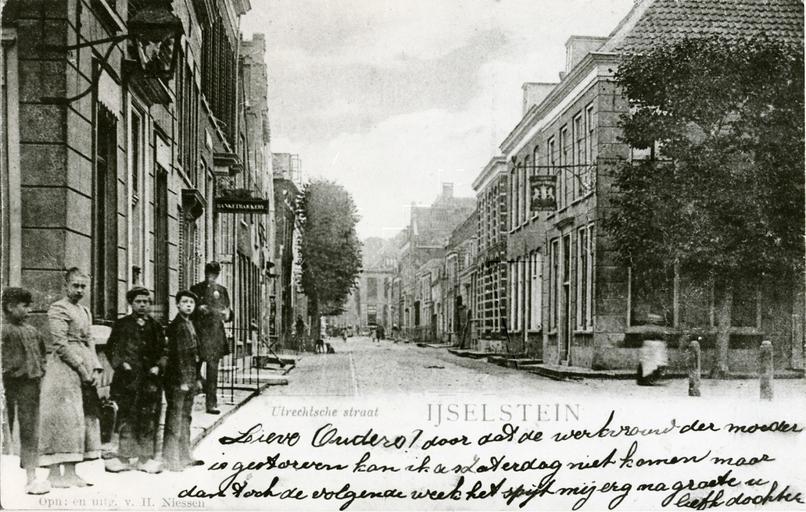 BANKETBAKKERY
Utrechtsche straat IJSELSTEIN
Lieve Ouders! door dat de werkvrouw der moeder
is gestorven kan ik a Zaterdag niet komen maar
dan toch de volgende week het spijt mij erg na groete u
liefh dochter
Opn: en uitg. v. H. Niessen